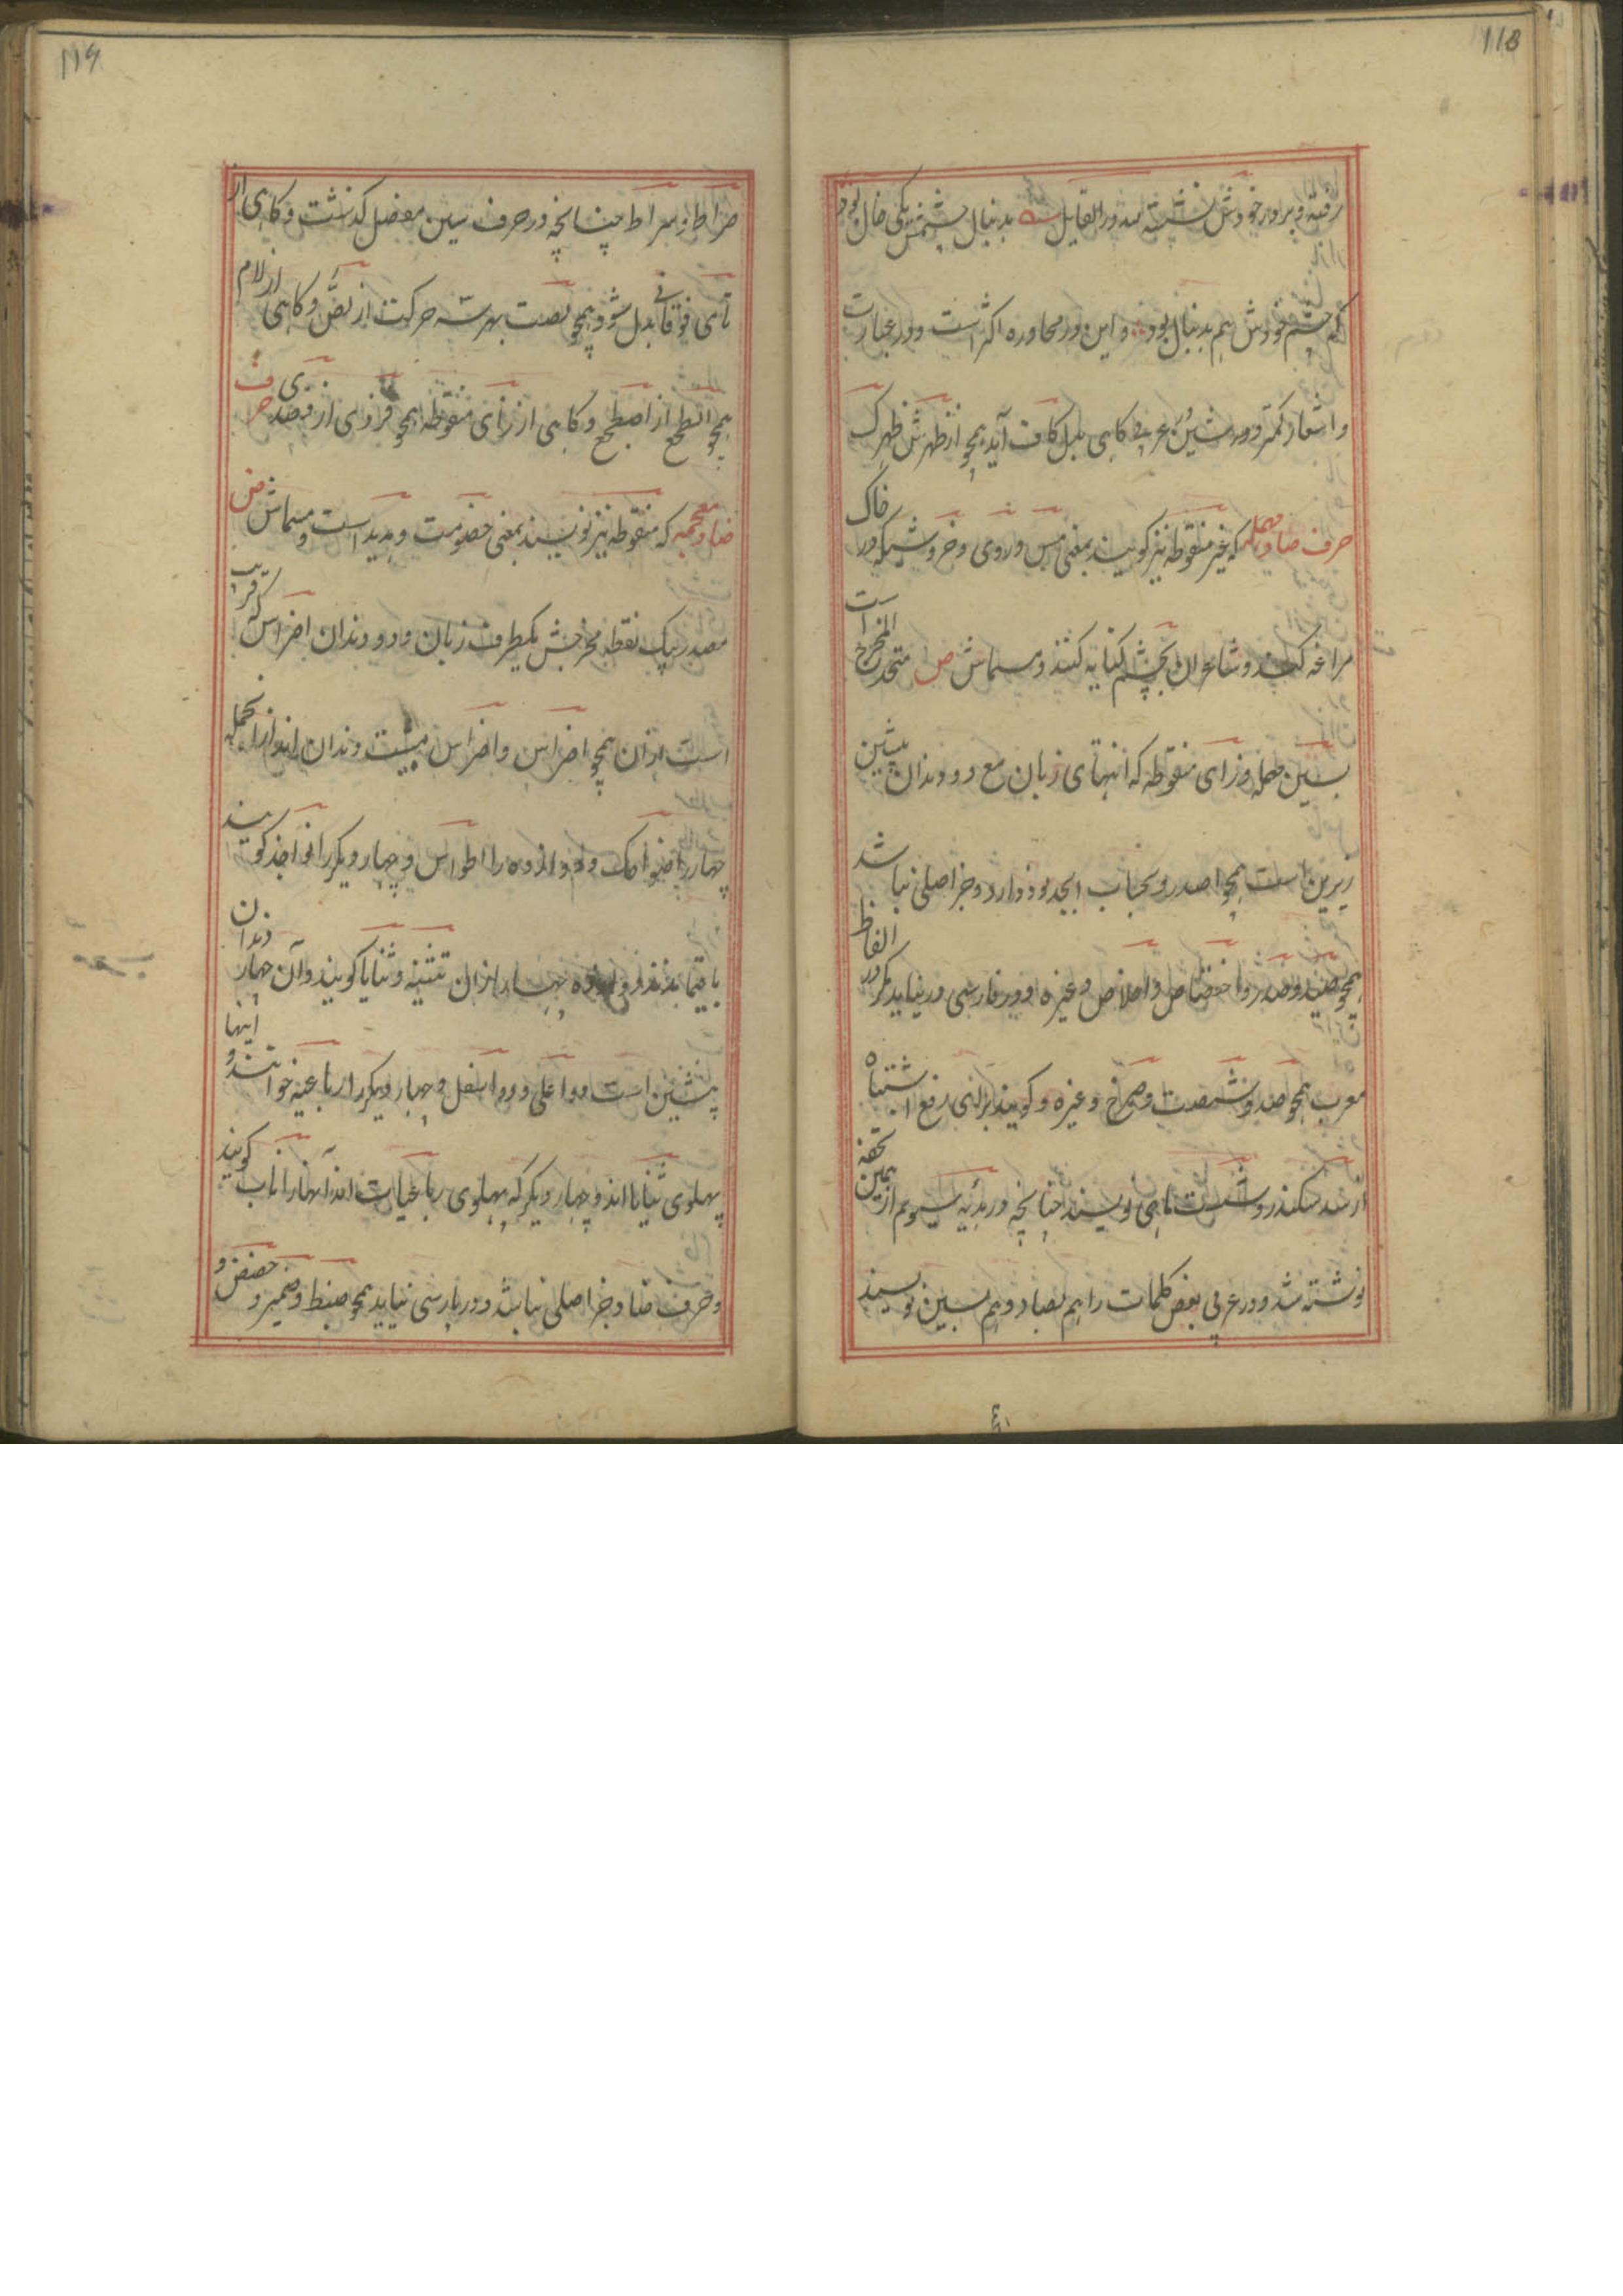 118
رفته و برادر خودش نشسته لله در القایل بدنبال چشمش یکی خال بود
که چشم خودش هم بدنبال بود و این در محاوره اکثر است و در عبارت
و اشعار کمتر و در شین عربی کاهی بدل کاف آید همچو از ظهرش ظهرک
حرف صاد مهمله که غیر منقوطه نیز کویند بمعنی مس و روی و خروسیکه در خاک
مراغه کند و شاعران بچشم کنایه کنند و مسماش ص متحد المخرج است
بسین مهمله و زای منقوطه که انتهای زبان مع دو دندان پیشین
زیرین است همچو اصدر و بحساب ابجد نود دارد و جز اصلی نباشد
همچو صید و صدر و اختصاص و اخلاص و غیره و در فارسی در نیاید مکر در الفاظ
معرب همچو صد و شصت و صرخ و غیره و کویند برای رفع اشتباه
از سد سکندر و شست ماهی نویسند چنانچه در بدئیه سیوم از همین تحفه
نوشته شد و در عربی بعض کلمات را هم بصاد و هم بسین نویسند
119
صراط و سراط چنانچه در حرف سین مفصل کذشت و کاهی از
تای فوقانی بدل شود همچو لصت بهر سه حرکت از لص و کاهی از لام
همچو الطجع از اضطجع و کاهی از زای منقوطه همچو فزدی از فصدی حرف
ضاد معجمه که منقوطه نیز نویسند بمعنی خصومت و هدید است و مسماش ض
مصدر بیک نقطه مخرجش یکطرف زبان و دو دندان اضراس که قریب
است ازان همچو اضراس و اضراس بیست دندان اند ازانجمله
چهار را ضواحک و دوازده را اطواس و چهار دیکر را نواجذ کویند
باقیمانده دوازده چهار ازان تثنیه و ثنایا کویند و آن چهار دندان
پیشین است دو اعلی و دو اسفل و چهار دیکر را رباعیه خوانند و اینها
پهلوی ثنایا اند و چهار دیکر که پهلوی رباعیات اند آنها را ناب کویند
و حرف ضاد جز اصلی نباشد و در پارسی نیاید همچو ضبط و ضمیر و حضض و